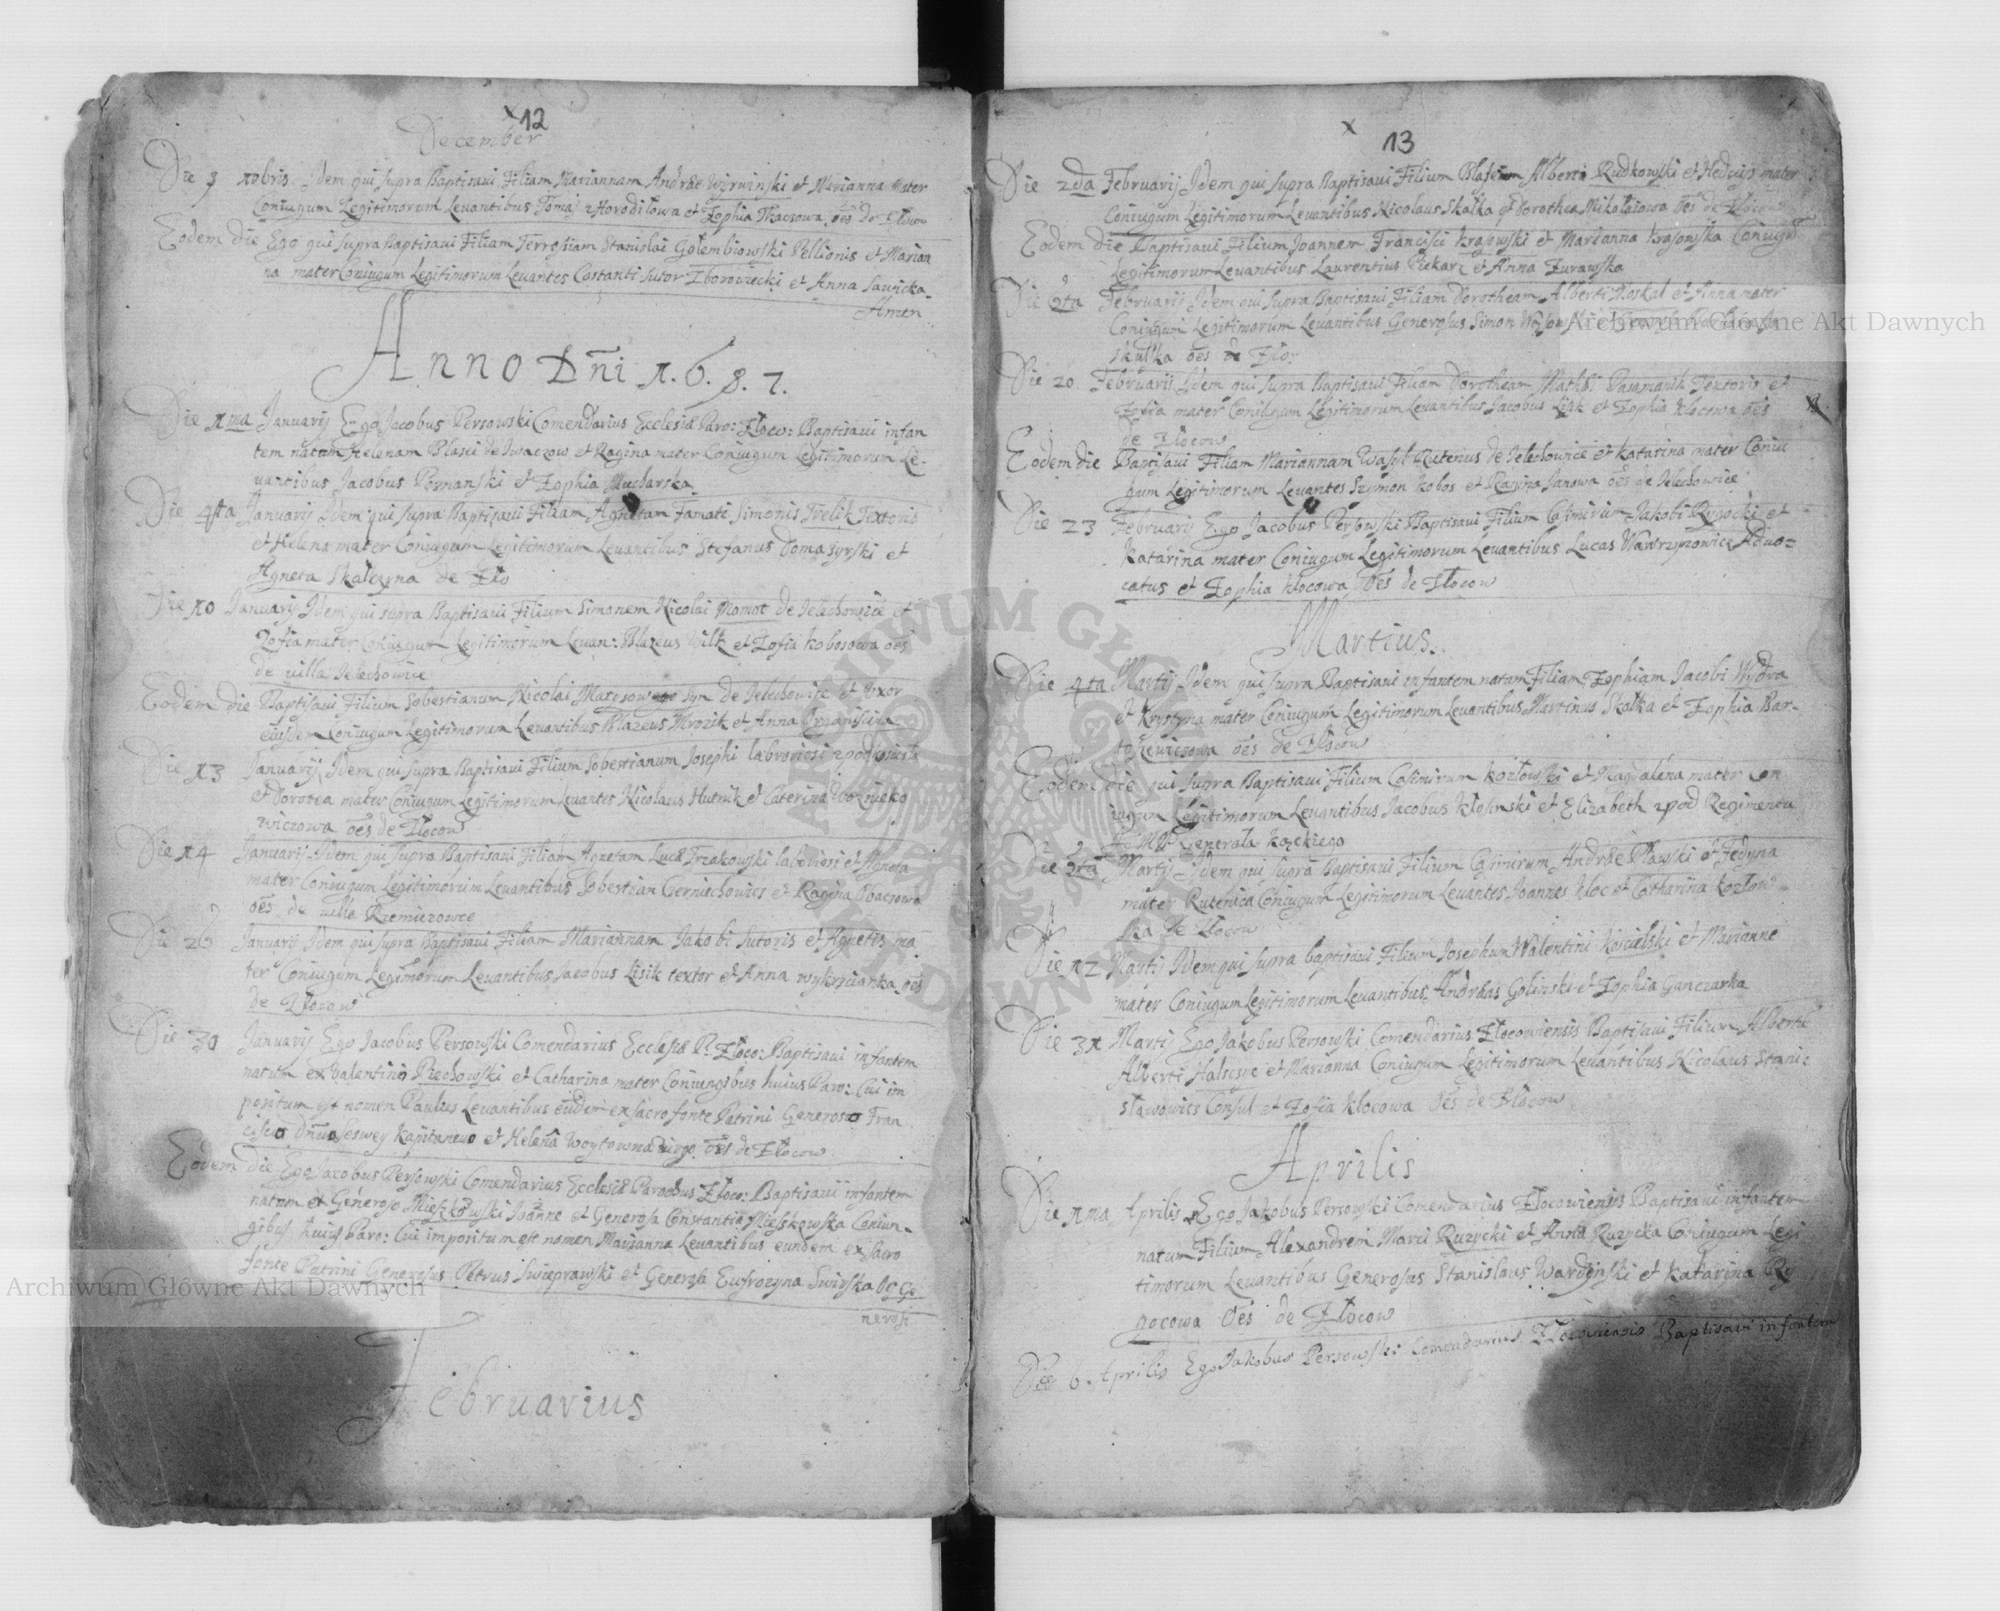 12
December
Die 3 Xbris Idem qui supra Baptisavi Filiam Mariannam Andreæ Wyrwinski et Marianna Mater
Coniugum Legitimorum Levantibus Tomas z Horodilowa et Zophia Tkaczowa oēs de Zlocow
Eodem die Ego qui supra Baptisavi Filiam Terresiam Stanislai Golembiowski Pellionis et Marian
na mater Coniugum Legitimorum Levantes Costanti Sutor Zborowiecki et Anna Sawicka
Amen
Anno Dñi 1.6.8.7.
Die 1ma Januarij Ego Jacobus Persowski Comendarius Ecclesiæ Paro: Zloco: Baptisavi infan
tem natam Helenam Blasii de Iwaczow et Ragina mater Coniugum Legitimorum Le-
vantibus Jacobus Poznanski et Zophia Mucharska
Die 4ta Januarij Idem qui supra Baptisavi Filiam Agnetam Famati Simonis Trelik Textoris
et Helena mater Coniugum Legitimorum Levantibus Stefanus Tomaszyrski et
Agneta Skalczyna de Zło
Die 10 Januarij Idem qui supra Baptisavi Filium Simonem Nicolai Momot de Jelechowice et
Zofia mater Coniugum Legitimorum Levan: Blazeus Wilk et Zofia Kobosowa oēs
de villa Jelechowice
Eodem die Baptisavi Filium Sobestianum Nicolai syn de Jelechowice et uxor
eiusdem Coniugum Legitimorum Levantibus Blazeus Mrozik et Anna
Die 13 Januarij Idem qui supra Baptisavi Filium Sobestianum Josephi laboriosi
et Dorotea mater Coniugum Legitimorum Levantes Nicolaus Hutnik et Caterina
wiczowa oēs de Zlocow
Die 14 Januarij Idem qui supra Baptisavi Filiam Agnetam Lucæ Trzakowski laboriosi et Agneta
mater Coniugum Legitimorum Levantibus Sobestian Cierniechowics et Ragina Tkaczowa
oēs de villa Rzemiezowce
Die 26 Januarij Idem qui supra Baptisavi Filiam Mariannam Jakobi Sutoris et Agnetis ma
ter Coniugum Legitimorum Levantibus Jacobus Lisik textor et Anna oēs
de Zlocow
Die 30 Januarij Ego Jacobus Persowski Comendarius Ecclesiæ P: Zloco: Baptisavi infantem
natum ex Valentino Piechowski et Catharina mater Coniungibus huius Paro: Cui im
positum est nomen Paulus Levantibus eūdem ex sacro fonte Patrini Generoso Fran
cisco et Helena Woytowna virgo oēs de Zlocow
Eodem die Ego Jacobus Persowski Comendarius Ecclesiæ Parochus Zloco: Baptisavi infantem
natum ex Generoso Mieszkowski Joanne et Generosa Constantia Mieskowska Coniun-
gibus huius Paro: Cui impositum est nomen Marianna Levantibus eundem ex sacro
fonte Patrini Generosus Petrus Swieprawski et Generosa Eufrozyna Swirska oēs Ge
nerosi
Februarius
13
Die 2da Februarij Idem qui supra Baptisavi Filium Blasium Alberti Rudkowski et Hedvigs mater
Coniugum Legitimorum Levantibus Nicolaus Skałka et Dorothea Mikołaiowa oēs de Zlocow
Eodem die Baptisavi Filium Joannem Francisci Krasowski et Marianna Krasowska Coniugum
Legitimorum Levantibus Laurentius Piekarz et Anna Zurawska
Die 9ta Februarij Idem qui supra Baptisavi Filiam Dorotheam Alberti Moskal et Anna mater
Coniugum Legitimorum Levantibus Generosus Simon
Skałka oēs de Zło:
Die 20 Februarij Idem qui supra Baptisavi Filiam Dorotheam Mathei Pasamanik Textoris et
Zofia mater Coniugum Legitimorum Levantibus Jacobus Lisik et Zophia Klocowa oēs
de Zlocow
Eodem die Baptisavi Filiam Mariannam Wasyl Rutenus de Jelechowice et Katarina mater Coniu
gum Legitimorum Levantes Szymon Kobos et Ragina Janowa oēs de Jelechowice
Die 23 Februarij Ego Jacobus Persowski Baptisavi Filium Casimirum Jakobi Rygocki et
Katarina mater Coniugum Legitimorum Levantibus Lucas Wawrzynowicz Advo=
catus et Zophia Klocowa oēs de Zlocow
Martius.
Die 4ta Martij Idem qui supra Baptisavi infantem natam Filiam Zophiam Jacobi Wydra
et Krystyna mater Coniugum Legitimorum Levantibus Martinus Skałka et Zophia Bar-
toszewiczowa oēs de Zlocow
Eodem die qui supra Baptisavi Filium Casimirum Kozłowski et Magdalena mater Con
iugum Legitimorum Levantibus Jacobus Kłosinski et Elizabeth zpod Regimentu
Generała Kąckiego
Die 9ta Martij Idem qui supra Baptisavi Filium Casimirum Andreæ Pławski et Fedyna
mater Rutenica Coniugum Legitimorum Levantes Joannes Kloc et Catharina Kozłow-
ska de Zlocow
Die 12 Martij Idem qui supra baptisavi Filium Josephum Walentini Koscielski et Marianne
mater Coniugum Legitimorum Levantibus Andreas Golinski et Zophia Ganczarka
Die 31 Martij Ego Jakobus Persowski Comendarius Zlocowiensis Baptisavi Filium Alberti
Alberti et Marianna Coniugum Legitimorum Levantibus Nicolaus Stanis
sławowics Consul et Zofia Klocowa oēs de Zlocow
Aprilis
Die 1ma Aprilis Ego Jakobus Persowski Comendarius Zlocowiensis Baptisavi infantem
natum Filium Alexandrem Marci Ruzycki et Anna Ruzycka Coniugum Legi
timorum Levantibus Generosus Stanislaus Wardenski et Katarina Ry
nocowa oēs de Zlocow
Die 6. Aprilis Ego Jakobus Persowski Comendarius Zlocowiensis Baptisavi infantem
Archiwum Główne Akt Dawnych
Archiwum Główne Akt Dawnych
ARCHIWUM GŁÓWNE AKT DAWNYCH